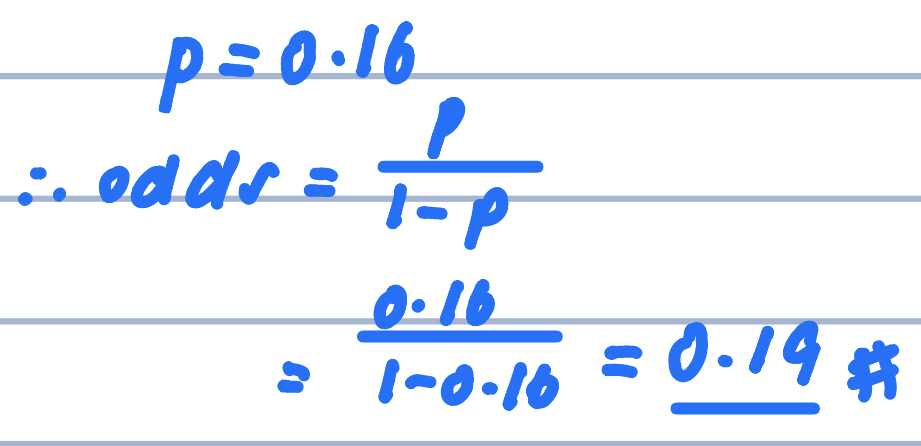 p = 0.16
∴ odds = p / (1 - p)
= 0.16 / (1 - 0.16) = 0.19 #